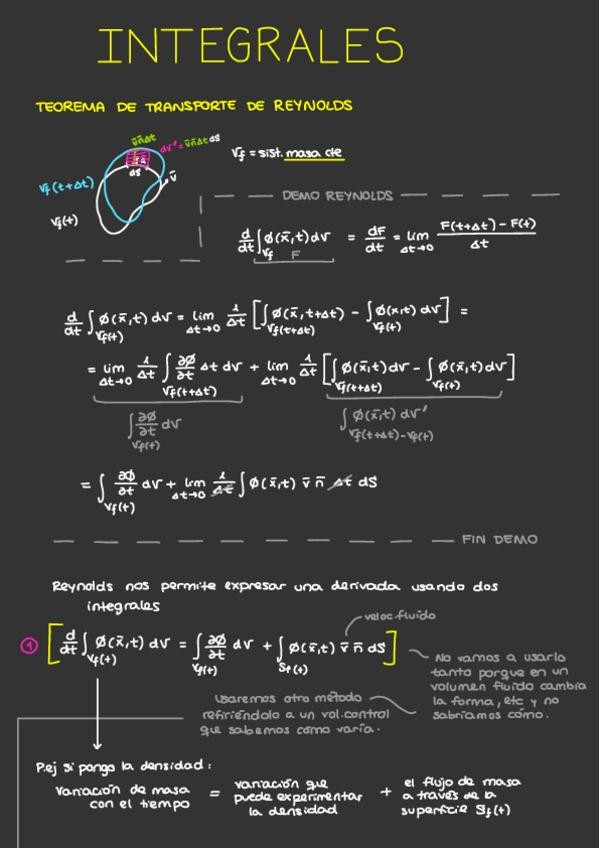 INTEGRALES
TEOREMA DE TRANSPORTE DE REYNOLDS
v̄n̄Δt
dV' = v̄n̄Δt ds
ds
v̄
V_f(t+Δt)
V_f(t)
V_f = sist. masa cte
DEMO REYNOLDS
d/dt ∫_{V_f} Ø(x̄,t) dV = dF/dt = lim_{Δt→0} (F(t+Δt) - F(t))/Δt
F
d/dt ∫_{V_f(t)} Ø(x̄,t) dV = lim_{Δt→0} 1/Δt [∫_{V_f(t+Δt)} Ø(x̄,t+Δt) - ∫_{V_f(t)} Ø(x,t) dV] =
= lim_{Δt→0} 1/Δt ∫_{V_f(t+Δt)} ∂Ø/∂t Δt dV + lim_{Δt→0} 1/Δt [∫_{V_f(t+Δt)} Ø(x̄,t) dV - ∫_{V_f(t)} Ø(x̄,t) dV]
∫_{V_f(t)} ∂Ø/∂t dV
∫_{V_f(t+Δt)-V_f(t)} Ø(x̄,t) dV'
= ∫_{V_f(t)} ∂Ø/∂t dV + lim_{Δt→0} 1/Δt ∫ Ø(x̄,t) v̄ n̄ Δt dS
FIN DEMO
Reynolds nos permite expresar una derivada usando dos
integrales
veloc. fluido
① [d/dt ∫_{V_f(t)} Ø(x̄,t) dV = ∫_{V_f(t)} ∂Ø/∂t dV + ∫_{S_f(t)} Ø(x̄,t) v̄ n̄ dS]
No vamos a usarlo
tanto porque en un
volumen fluido cambia
la forma, etc y no
sabríamos cómo.
Usaremos otro método
refiriéndolo a un vol. control
que sabemos cómo varía.
P.ej si pongo la densidad:
Variación de masa
con el tiempo
=
variación que
puede experimentar
la densidad
+
el flujo de masa
a través de la
superficie S_f(t)